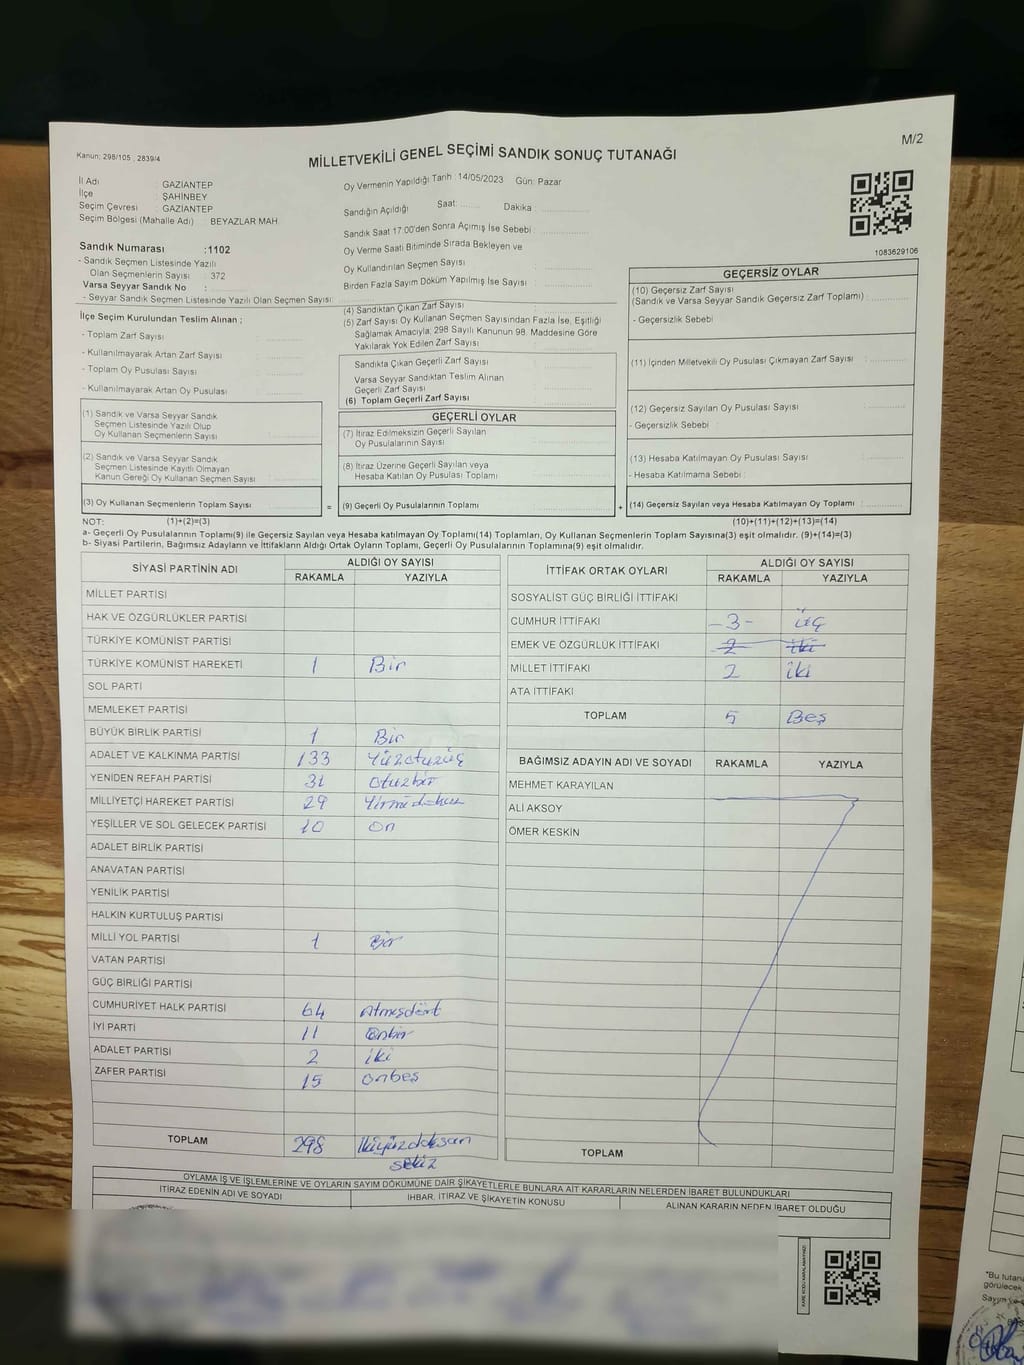 M/2
Kanun; 298/105 , 2839/4
MİLLETVEKİLİ GENEL SEÇİMİ SANDIK SONUÇ TUTANAĞI
İl Adı : GAZİANTEP
İlçe : ŞAHİNBEY
Seçim Çevresi : GAZİANTEP
Seçim Bölgesi (Mahalle Adı) : BEYAZLAR MAH.
Sandık Numarası :1102
- Sandık Seçmen Listesinde Yazılı
Olan Seçmenlerin Sayısı : 372
Varsa Seyyar Sandık No :
- Seyyar Sandık Seçmen Listesinde Yazılı Olan Seçmen Sayısı:
Oy Vermenin Yapıldığı Tarih :14/05/2023 Gün: Pazar
Sandığın Açıldığı Saat: Dakika :
Sandık Saat 17:00'den Sonra Açımış İse Sebebi :
Oy Verme Saati Bitiminde Sırada Bekleyen ve
Oy Kullandırılan Seçmen Sayısı :
Birden Fazla Sayım Döküm Yapılmış İse Sayısı :
1083629106
İlçe Seçim Kurulundan Teslim Alınan ;
- Toplam Zarf Sayısı :
- Kullanılmayarak Artan Zarf Sayısı :
- Toplam Oy Pusulası Sayısı :
- Kullanılmayarak Artan Oy Pusulası :
(1) Sandık ve Varsa Seyyar Sandık
Seçmen Listesinde Yazılı Olup
Oy Kullanan Seçmenlerin Sayısı :
(2) Sandık ve Varsa Seyyar Sandık
Seçmen Listesinde Kayıtlı Olmayan
Kanun Gereği Oy Kullanan Seçmen Sayısı :
(3) Oy Kullanan Seçmenlerin Toplam Sayısı : =
(4) Sandıktan Çıkan Zarf Sayısı :
(5) Zarf Sayısı Oy Kullanan Seçmen Sayısından Fazla İse, Eşitliği
Sağlamak Amacıyla; 298 Sayılı Kanunun 98. Maddesine Göre
Yakılarak Yok Edilen Zarf Sayısı :
Sandıkta Çıkan Geçerli Zarf Sayısı :
Varsa Seyyar Sandıktan Teslim Alınan
Geçerli Zarf Sayısı :
(6) Toplam Geçerli Zarf Sayısı :
GEÇERLİ OYLAR
(7) İtiraz Edilmeksizin Geçerli Sayılan
Oy Pusulalarının Sayısı :
(8) İtiraz Üzerine Geçerli Sayılan veya
Hesaba Katılan Oy Pusulası Toplamı :
(9) Geçerli Oy Pusulalarının Toplamı : +
GEÇERSİZ OYLAR
(10) Geçersiz Zarf Sayısı
(Sandık ve Varsa Seyyar Sandık Geçersiz Zarf Toplamı) :
- Geçersizlik Sebebi :
(11) İçinden Milletvekili Oy Pusulası Çıkmayan Zarf Sayısı :
(12) Geçersiz Sayılan Oy Pusulası Sayısı :
- Geçersizlik Sebebi :
(13) Hesaba Katılmayan Oy Pusulası Sayısı :
- Hesaba Katılmama Sebebi :
(14) Geçersiz Sayılan veya Hesaba Katılmayan Oy Toplamı :
NOT: (1)+(2)=(3) (10)+(11)+(12)+(13)=(14)
a- Geçerli Oy Pusulalarının Toplamı(9) ile Geçersiz Sayılan veya Hesaba katılmayan Oy Toplamı(14) Toplamları, Oy Kullanan Seçmenlerin Toplam Sayısına(3) eşit olmalıdır. (9)+(14)=(3)
b- Siyasi Partilerin, Bağımsız Adayların ve İttifakların Aldığı Ortak Oyların Toplamı, Geçerli Oy Pusulalarının Toplamına(9) eşit olmalıdır.
SİYASİ PARTİNİN ADI ALDIĞI OY SAYISI
RAKAMLA YAZIYLA
MİLLET PARTİSİ
HAK VE ÖZGÜRLÜKLER PARTİSİ
TÜRKİYE KOMÜNİST PARTİSİ
TÜRKİYE KOMÜNİST HAREKETİ 1 Bir
SOL PARTİ
MEMLEKET PARTİSİ
BÜYÜK BİRLİK PARTİSİ 1 Bir
ADALET VE KALKINMA PARTİSİ 133 Yüzotuzüç
YENİDEN REFAH PARTİSİ 31 otuzbir
MİLLİYETÇİ HAREKET PARTİSİ 29 Yirmidokuz
YEŞİLLER VE SOL GELECEK PARTİSİ 10 on
ADALET BİRLİK PARTİSİ
ANAVATAN PARTİSİ
YENİLİK PARTİSİ
HALKIN KURTULUŞ PARTİSİ
MİLLİ YOL PARTİSİ 1 Bir
VATAN PARTİSİ
GÜÇ BİRLİĞİ PARTİSİ
CUMHURİYET HALK PARTİSİ 64 Atmışdört
İYİ PARTİ 11 onbir
ADALET PARTİSİ 2 iki
ZAFER PARTİSİ 15 onbeş
TOPLAM 298 ikiyüzdoksan
sekiz
İTTİFAK ORTAK OYLARI ALDIĞI OY SAYISI
RAKAMLA YAZIYLA
SOSYALİST GÜÇ BİRLİĞİ İTTİFAKI
CUMHUR İTTİFAKI -3- üç
EMEK VE ÖZGÜRLÜK İTTİFAKI 2 iki
MİLLET İTTİFAKI 2 iki
ATA İTTİFAKI
TOPLAM 5 Beş
BAĞIMSIZ ADAYIN ADI VE SOYADI RAKAMLA YAZIYLA
MEHMET KARAYILAN
ALİ AKSOY
ÖMER KESKİN
TOPLAM
OYLAMA İŞ VE İŞLEMLERİNE VE OYLARIN SAYIM DÖKÜMÜNE DAİR ŞİKAYETLERLE BUNLARA AİT KARARLARIN NELERDEN İBARET BULUNDUKLARI
İTİRAZ EDENİN ADI VE SOYADI İHBAR, İTİRAZ VE ŞİKAYETİN KONUSU ALINAN KARARIN NEDEN İBARET OLDUĞU
KARE KODU KARALAMAYINIZ!
*Bu tutana
görülecek
Sayım ve